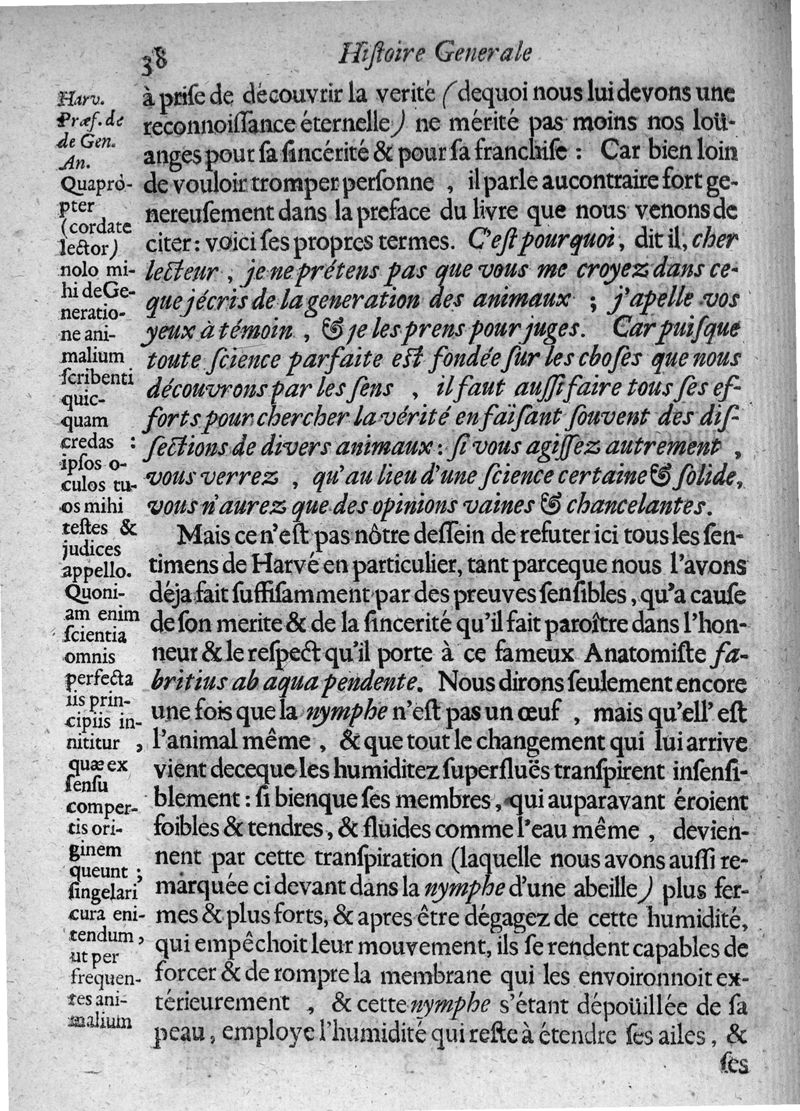 38 Hiſtoire Generale
à priſe de découvrir la verité (dequoi nous lui devons une
reconnoiſſance éternelle) ne mérité pas moins nos loü-
anges pour ſa ſincérité & pour ſa franchiſe : Car bien loin
de vouloir tromper perſonne , il parle aucontraire fort ge-
nereuſement dans la preface du livre que nous venons de
citer : voici ſes propres termes. C'eſt pourquoi, dit il, cher
lecteur , je ne prétens pas que vous me croyez dans ce-
que j'écris de la generation des animaux ; j'apelle vos
yeux à témoin , & je les prens pour juges. Car puiſque
toute ſcience parfaite eſt fondée ſur les choſes que nous
découvrons par les ſens , il faut auſſi faire tous ſes ef-
forts pour chercher la vérité en faiſant ſouvent des diſ-
ſections de divers animaux : ſi vous agiſſez autrement ,
vous verrez , qu'au lieu d'une ſcience certaine & ſolide,
vous n'aurez que des opinions vaines & chancelantes.
Mais ce n'eſt pas nôtre deſſein de refuter ici tous les ſen-
timens de Harvé en particulier, tant parceque nous l'avons
déja fait ſuffiſamment par des preuves ſenſibles, qu'a cauſe
de ſon merite & de la ſincerité qu'il fait paroître dans l'hon-
neur & le reſpect qu'il porte à ce fameux Anatomiſte fa-
britius ab aqua pendente. Nous dirons ſeulement encore
une fois que la nymphe n'eſt pas un œuf , mais qu'ell' eſt
l'animal même , & que tout le changement qui lui arrive
vient deceque les humiditez ſuperfluës tranſpirent inſenſi-
blement : ſi bienque ſes membres, qui auparavant éroient
foibles & tendres, & fluides comme l'eau même , devien-
nent par cette tranſpiration (laquelle nous avons auſſi re-
marquée ci devant dans la nymphe d'une abeille) plus fer-
mes & plus forts, & apres être dégagez de cette humidité,
qui empêchoit leur mouvement, ils ſe rendent capables de
forcer & de rompre la membrane qui les envoironnoit ex-
térieurement , & cette nymphe s'étant dépoüillée de ſa
peau, employe l'humidité qui reſte à étendre ſes ailes, &
ſes
Harv.
Præf. de
de Gen.
An.
Quaprò-
pter
(cordate
lector)
nolo mi-
hi de Ge-
neratio-
ne ani-
malium
ſcribenti
quic-
quam
credas :
ipſos o-
culos tu-
os mihi
teſtes &
judices
appello.
Quoni-
am enim
ſcientia
omnis
perfecta
iis prin-
cipiis in-
nititur ,
quæ ex
ſenſu
comper-
tis ori-
ginem
queunt ;
ſingelari
cura eni-
tendum ,
ut per
frequen-
tes ani-
malium